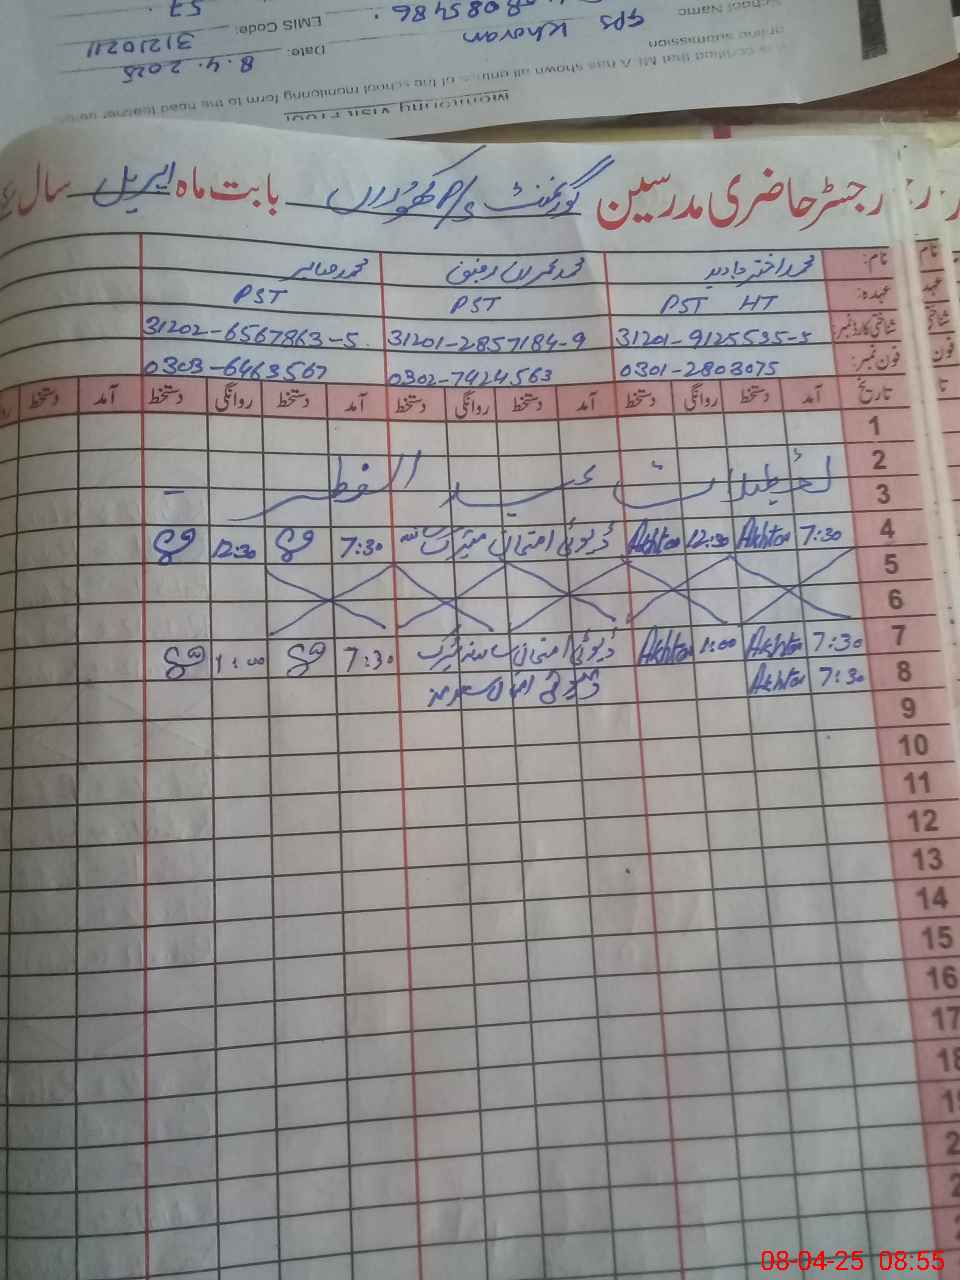 Monitoring Visit Proof
that MEA has shown all entries of the school monitoring form to the head teacher
online submission
Date: 8.4.2025
School Name GPS Khavran EMIS Code: 31210211
رجسٹر حاضری مدرسین گورنمنٹ بابت ماہ اپریل سال
نام: محمد اختر جاوید محمد عمران رفیق محمد صابر
عہدہ: PST HT PST PST
شناختی کارڈ نمبر: 31201-9125535-5 31201-2857184-9 31202-6567863-5
فون نمبر: 0301-2803075 0302-7424563 0303-6463567
تاریخ آمد دستخط روانگی دستخط آمد دستخط روانگی دستخط آمد دستخط روانگی دستخط آمد دستخط
1
2 تعطیلات عید الفطر
3
4 7:30 Akhtar 12:30 Akhtar ڈیوٹی امتحان میٹرک 7:30 12:30
5
6
7 7:30 Akhtar 1:00 Akhtar ڈیوٹی امتحان 7:30 1:00
8 7:30 Akhtar ڈیوٹی امتحان
9
10
11
12
13
14
15
16
17
18
08-04-25 08:55